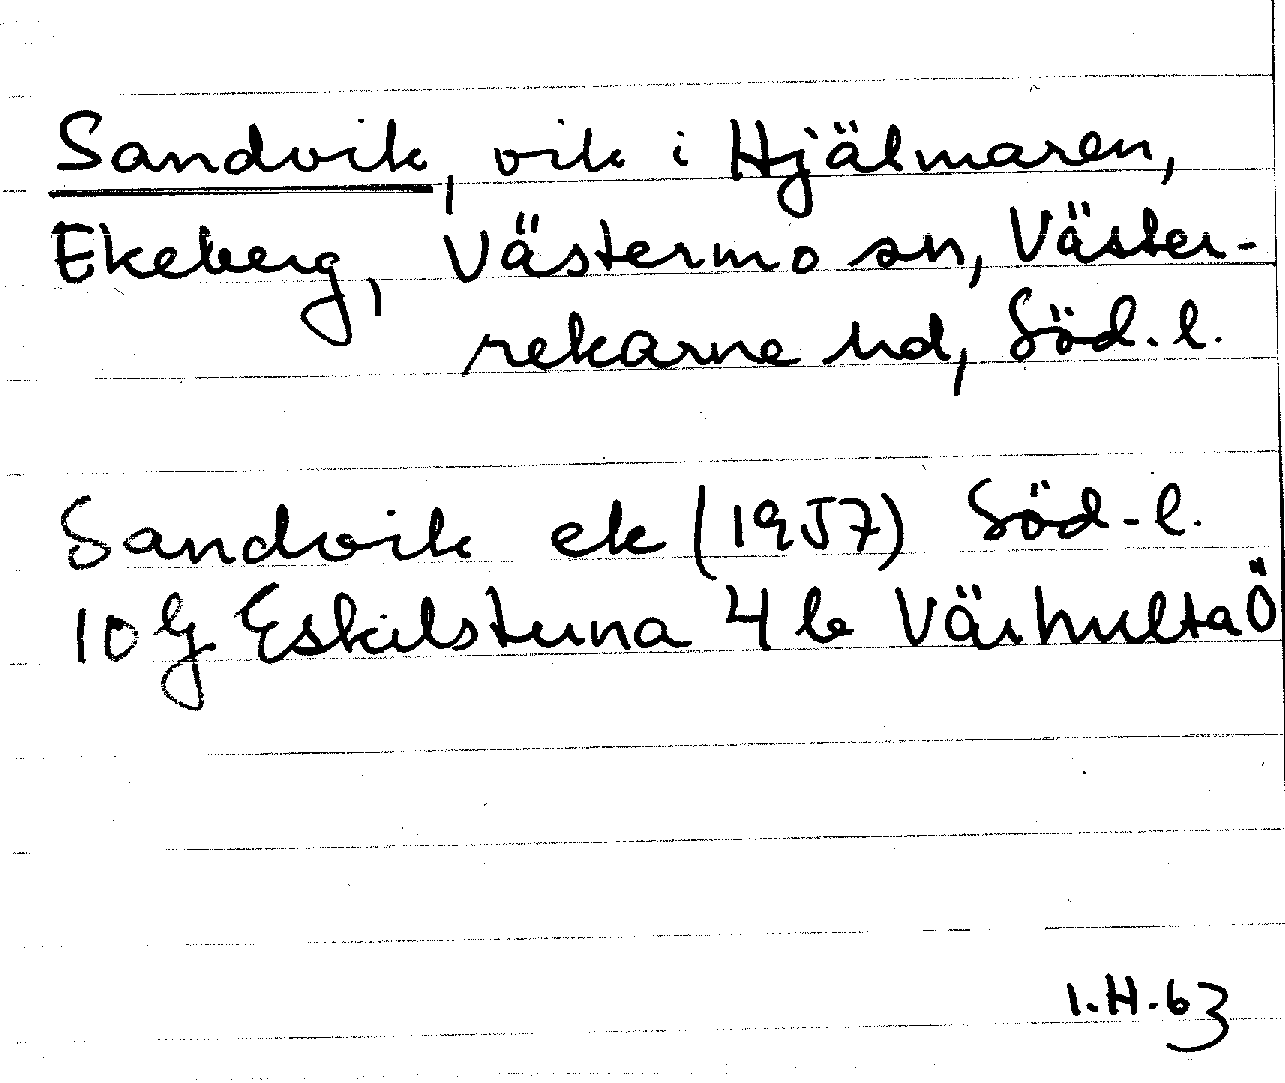 Sandvik, vik i Hjälmaren,
Ekeberg, Västermo sn, Väster-
rekarne hd, Söd. l.
Sandvik ek (1957) Söd. l.
10 G Eskilstuna 4 b Värhulta Ö
I.H. 63